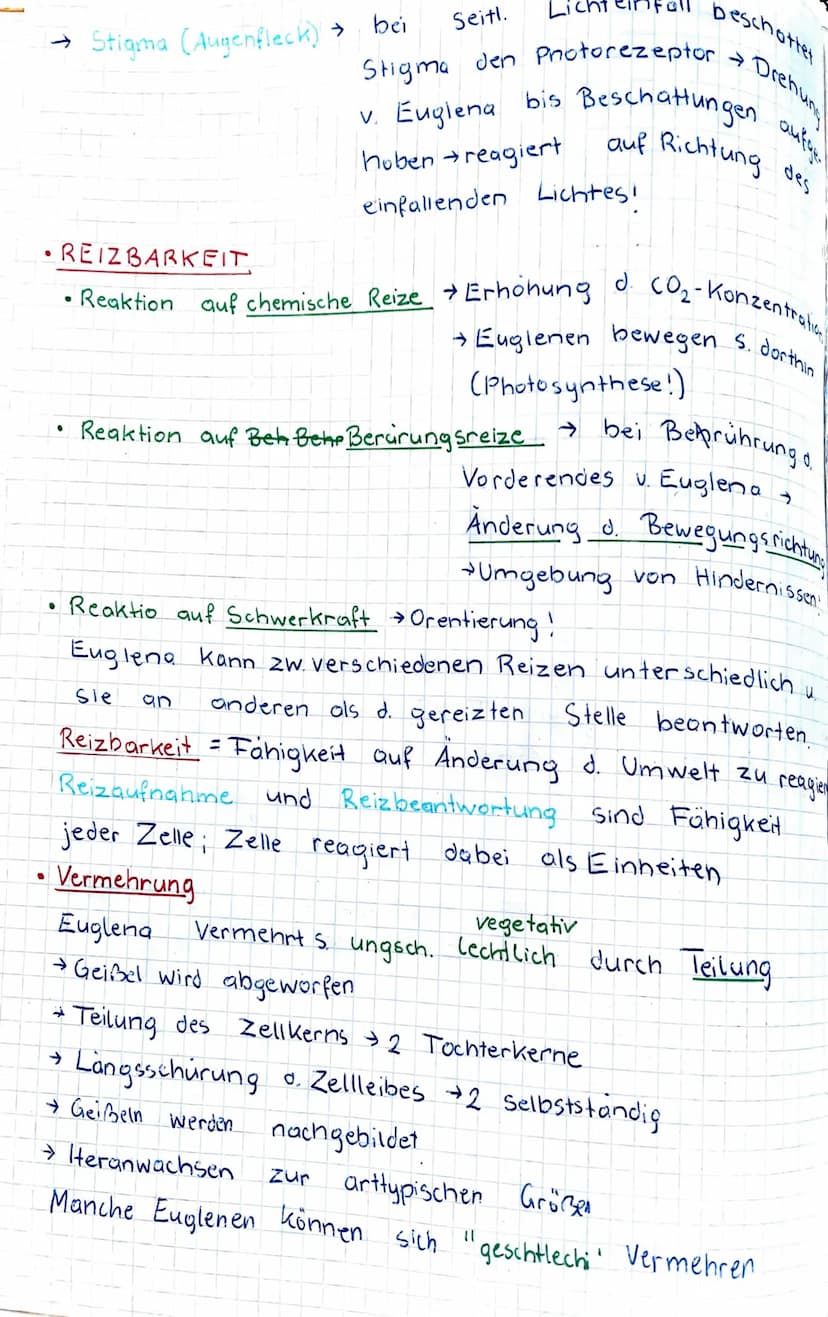 → Stigma (Augenfleck) → bei Seitl. Lichteinfall beschattet
Stigma den Photorezeptor → Drehung
v. Euglena bis Beschattungen aufge-
hoben → reagiert auf Richtung des
einfallenden Lichtes!
• REIZBARKEIT
• Reaktion auf chemische Reize → Erhöhung d. CO₂-Konzentration
→ Euglenen bewegen s. dorthin
(Photosynthese!)
• Reaktion auf Beh Behr Berürungsreize → bei Berührung d.
Vorderendes v. Euglena →
Änderung d. Bewegungsrichtung
→ Umgebung von Hindernissen.
• Reaktio auf Schwerkraft → Orentierung!
Euglena kann zw. verschiedenen Reizen unterschiedlich u.
sie an anderen als d. gereizten Stelle beantworten.
Reizbarkeit = Fähigkeit auf Änderung d. Umwelt zu reagier
Reizaufnahme und Reizbeantwortung sind Fähigkeit
jeder Zelle; Zelle reagiert dabei als Einheiten
• Vermehrung
vegetativ
Euglena Vermehrt s. ungsch. lechtlich durch Teilung
→ Geißel wird abgeworfen
→ Teilung des Zellkerns → 2 Tochterkerne
→ Längsschürung d. Zellleibes → 2 selbstständig
→ Geißeln werden nachgebildet
→ Heranwachsen zur arttypischen Größen
Manche Euglenen können sich "geschtlech" Vermehren